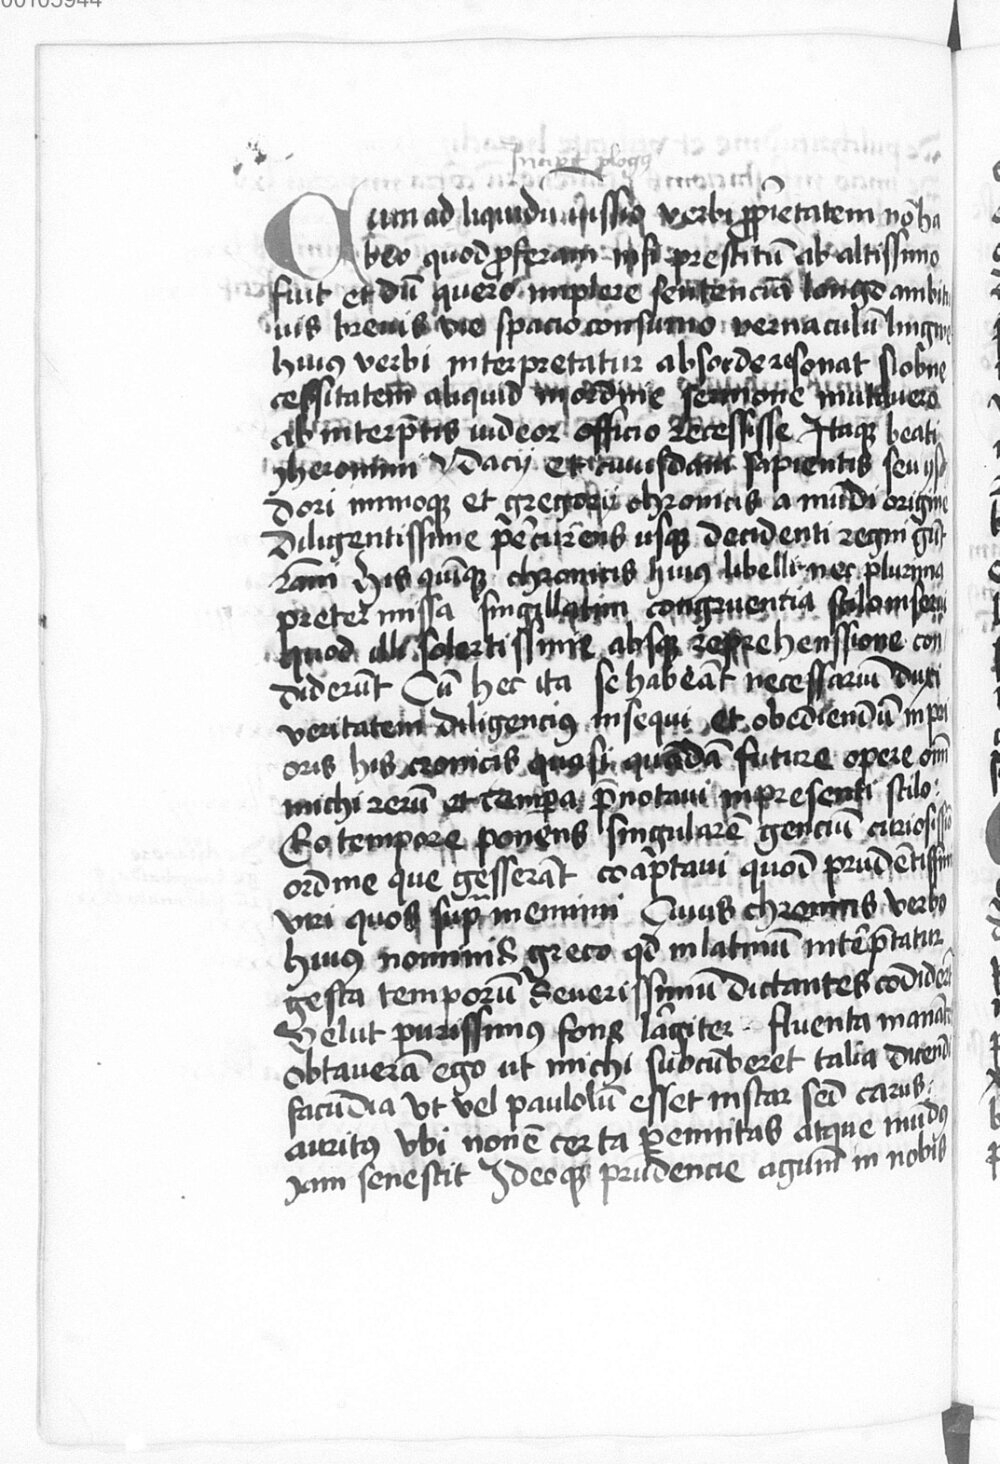 00105944
Incipit plogus
Cum ad liquidū iussio verbi ꝓprietatem nō ha
beo quod ꝓferam nisi prestitū ab altissimo
fuit et dū quero implere sentenciā longo ambitu
uis breuis vie spacio consumo vernaculū lingwe
huius verbi interpretatur absorde resonat si ob ne
cessitatem aliquid in ordine sermone mutauero
ab interp̄tis uideor officio recessisse Itaqꝫ beati
yheronimi Vdacij et cuiusdam sapientis seu yso
dori immoqꝫ et gregorij chronicis a mūdi origine
Diligentissime p̄curēns usqꝫ decidenti regni gūt
rāmi His quīqꝫ chronicis huius libelli nec plurima
pretermissa singillatim congruentia stilo inserui
quod illi solertissime absqꝫ reprehenssione con
diderūt Cū hec ita se habeāt necessariū duxi
veritatem diligencius insequi et obediendū in pri
oris his cronicis quasi quādā future opere om̄
michi rerū et tempa p̄notaui in presenti stilo :
Eo tempore ponens singularē genciū curiosissio
ordine que gesserāt coaptaui quoī prudētissim
viri quos sup̄ memini Cuius chronicis verbo
huius nominis greco qd in latinū intēp̄tatur
gesta temporū Seuerissimū dictantes codiderūt
Velut purissimus fons largiter fluenta manāt
obtauerā ego ut michi subcūberet talia dicendi
facūdia Vt vel paulolū esset instar sed carus :
auritus vbi non ē certa ꝑennitas atque mūdus
iam senescit Ideoqꝫ prudencie acumē in nobis